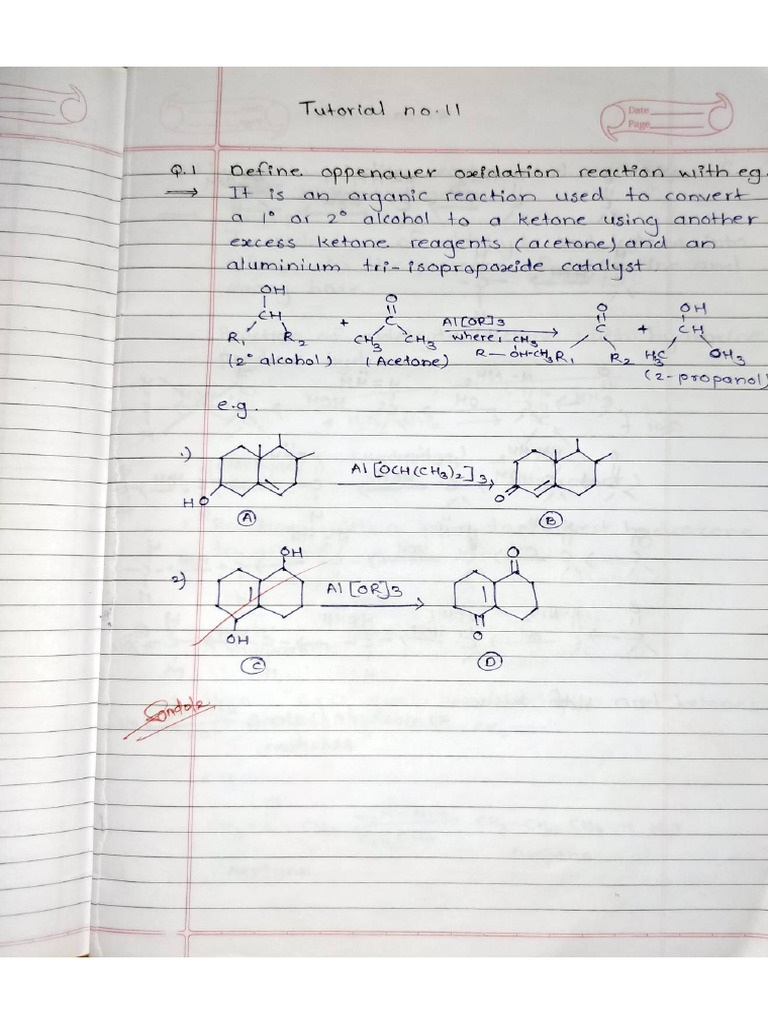 Tutorial no.11
Date
Page
Q.1 Define oppenauer oxidation reaction with eg.
→ It is an organic reaction used to convert
a 1° or 2° alcohol to a ketone using another
excess ketone reagents (acetone) and an
aluminium tri-isopropoxide catalyst.
OH O O OH
CH + C Al[OR]3 C + CH
R1 R2 CH3 CH3 where, CH3 R1 R2 H3C OH3
R — OH-CH3
(2° alcohol) (Acetone) (2-propanol)
e.g.
1) Al[OCH(CH3)2]3
HO O
A B
2) OH Al[OR]3 O
OH O
C D